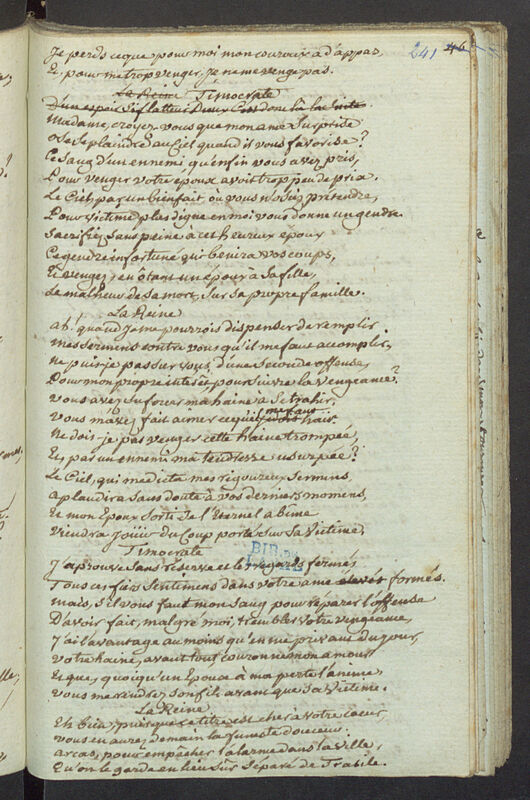 241 46
Je perds ce que pour moi mon couroux a d'appas,
Et, pour me trop venger, je ne me venge pas.
La Reine Timocrate
D'un espoir si flatteur
Madame, croyez-vous que mon ame surprise
Ose se plaindre au Ciel quand il vous favorise?
Le sang d'un ennemi qu'enfin vous avez pris,
Pour venger votre époux avoit trop peu de prix.
Le Ciel, par un bienfait où vous n'osiez prétendre,
Pour victime plus digne en moi vous donne un gendre.
Sacrifiez sans peine à cet heureux époux
Ce gendre infortuné qui benira vos coups,
Et vengez, en ôtant un époux à sa fille,
Le malheur de sa mort, sur sa propre famille.
La Reine
Ah! quand je ne pourrois dispenser de remplir
Mes sermens contre vous qu'il me faut accomplir,
Ne puis-je pas sur vous, d'une seconde offense,
Pour mon propre interêt, poursuivre la vengeance?
Vous avez su forcer ma haine à se trahir,
Vous m'avez fait aimer ce qu'il me faut haïr.
Ne dois-je pas venger cette haine trompée,
Et, par un ennemi ma tendresse usurpée?
Le Ciel, qui me dicta mes rigoureux sermens,
Aplaudira sans doute à vos derniers momens,
Et mon Epoux sorti de l'Eternel abime
Viendra jouir du Coup porté sur sa Victime,
Timocrate
J'aprouve sans réserve et le regards fermés
Tous ces fiers sentimens dans votre ame formés.
Mais, s'il vous faut mon sang pour réparer l'offense
D'avoir fait, malgré moi, trembler votre vengeance,
J'ai l'avantage au moins qu'en me privant du jour,
Votre haine, avant tout couronne mon amour
Et que, quoiqu'un Epoux à ma perte l'anime,
Vous me rendrez son fils avant que sa Victime.
La Reine
Eh bien, puisque ce titre est cher à votre coeur,
Vous en aurez demain la funeste douceur.
Arcas, pour empêcher l'alarme dans la Ville,
Qu'on le garde en lieu sûr séparé de Trasile.